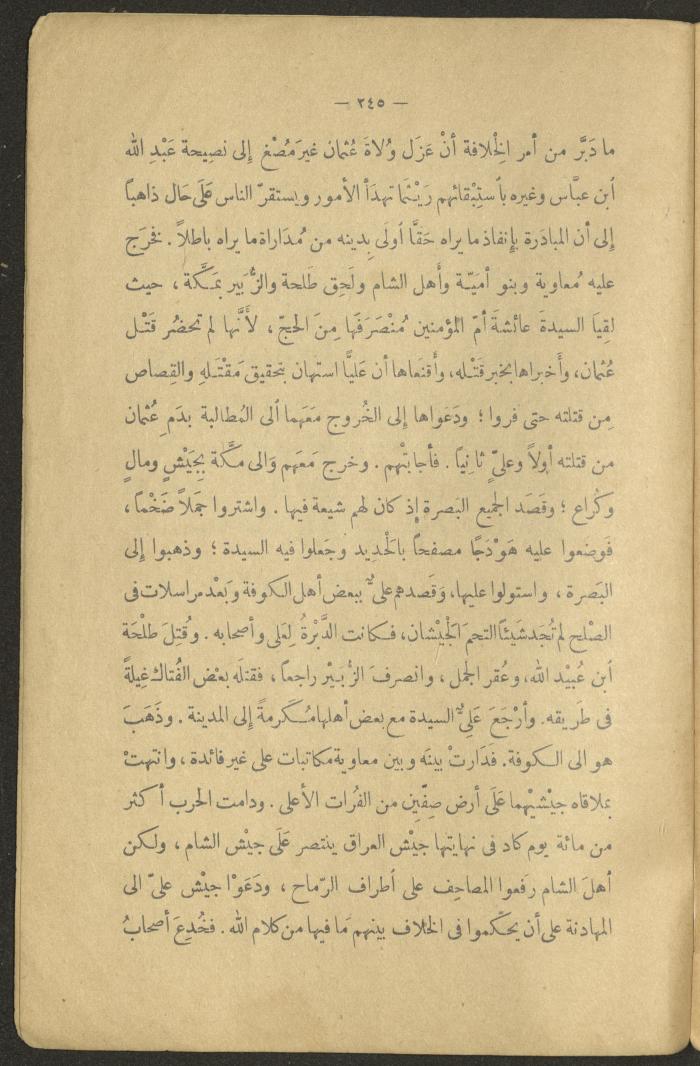 — ٢٤٥ —
ما دَبَّر من أمر الخِلافة أنْ عَزَل وُلاةَ عُثمان غيرَ مُصْغ إلى نصِيحة عَبْدِ الله
ابن عبَّاس وغيره باُستِبْقائهم رَيْثما تهدَأ الأمور ويستقرّ الناس عَلَى حَال ذاهباً
إلى أن المبادَرة بإنفاذ ما يراه حَقًّا أولَى بِدينه من مُدَاراة ما يراه باطلاً . فخرَج
عليه مُعاوية وبنو أميّة وأهل الشام ولَحِق طَلحة والزُّبَير بمَكَّة ، حيث
لقِيَا السيدةَ عائشةَ أمّ المؤمنين مُنْصَرَفَها مِنَ الحجّ ، لأَنَّها لم تحضُر قَتْل
عُثمان، وأَخبراها بخبر قَتْله، وأَقنَعاها أن عَليًّا استهان بتحقيق مَقْتَلهِ والقِصاص
مِن قتلته حتى فروا ؛ ودَعواها إلى الخُروج مَعَهما الى المُطالبة بدَم عُثمان
من قتلته أولاً وعليّ ثانِياً . فأجابتْهم . وخرج مَعَهم وَالى مكَّة بِجَيْشٍ ومالٍ
وكُراع ؛ وقَصَد الجميع البَصرة إذ كان لهم شيعة فيها . واشتروا جَملاً ضَخْماً ،
فَوضعوا عليه هَوْدَجاً مصفحاً بالحْدِيد وجَعلوا فيه السيدة ؛ وذهبوا إلى
البَصرة ، واستولوا عليها، وَقَصدهم علىٌّ ببعض أهل الكوفة وَبَعْد مراسلات فى
الصْلح لم تُجَد شَيْئاً التحمَ الْجَيْشان، فكانت الدَّبْرةُ لِعَلى وأصحابه . وقُتِلَ طلْحَة
ابن عُبيْد الله، وعُقر الجمل ، وانصرفَ الزُّبَيْر راجعاً ، فقتلَه بعْض الفُتاك غِيلةً
فى طَريقه. وأرْجَعَ عَلِىٌّ السيدة مع بعض أهلها مُكرمةً إلى المدينة . وذَهَبَ
هو الى الكوفة. فدَارتْ بينَه وبين معاوية مكاتبات على غير فائدة ، وانتهتْ
بملاقاه جيْشيْهما عَلَى أرض صِفّين من الفُرات الأعلى . ودامت الحرب أكثر
من مائة يوم كاد فى نهايتها جيْش العراق ينتصر عَلَى جيْش الشام ، ولكن
أهلَ الشام رَفعوا المصاحِف على أطراف الرّماح ، ودَعَوْا جيْش علىّ الى
المهادنة على أن يحكّموا فى الخلاف بينهم مَا فيها من كلام الله . فخُدِعَ أصحابُ